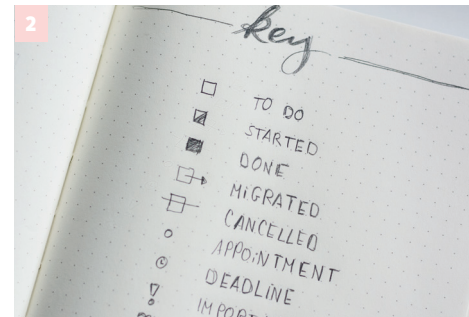 2
key
TO DO
STARTED
DONE
MiGRATED
CANCELLED
APPOiNTMENT
DEADLINE